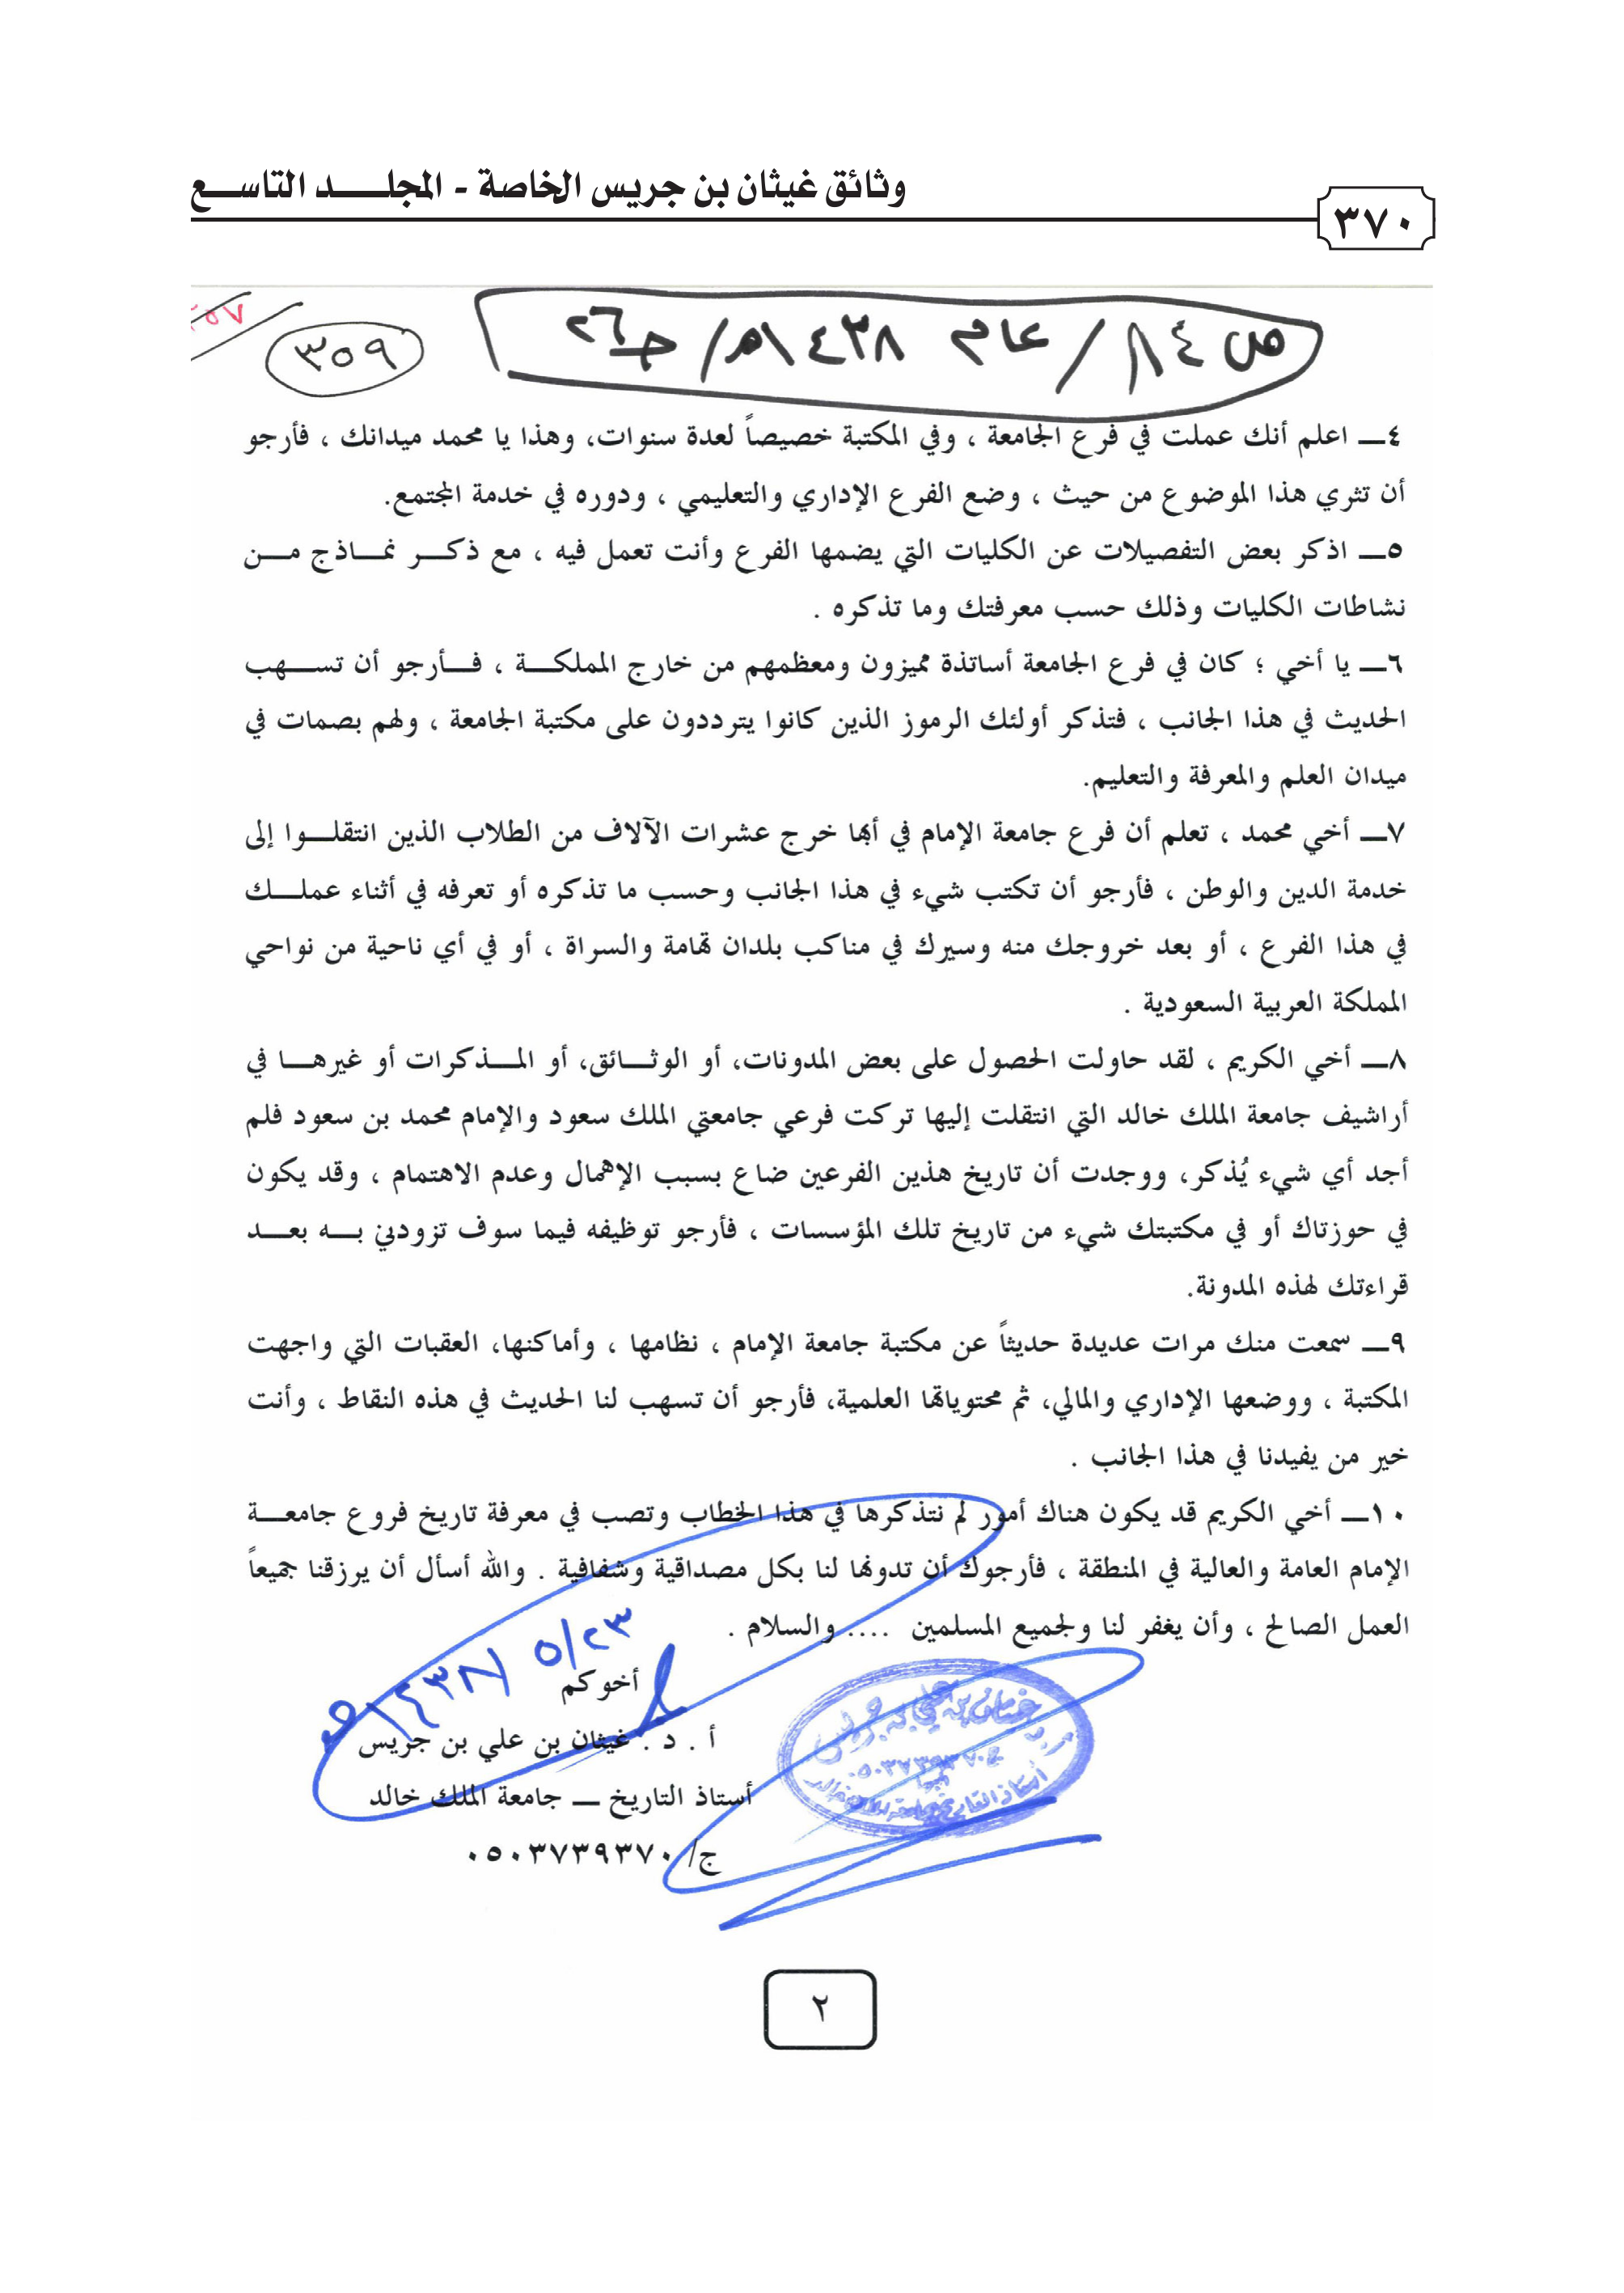 وثائق غيثان بن جريس الخاصة - المجلــــد التاســـع
٣٧٠
ص ٨٤ / عام ١٤٣٨هـ / جـ٢٦
٣٥٩
٤ــ اعلم أنك عملت في فرع الجامعة ، وفي المكتبة خصيصاً لعدة سنوات، وهذا يا محمد ميدانك ، فأرجو
أن تثري هذا الموضوع من حيث ، وضع الفرع الإداري والتعليمي ، ودوره في خدمة المجتمع.
٥ــ اذكر بعض التفصيلات عن الكليات التي يضمها الفرع وأنت تعمل فيه ، مع ذكـــر نمـــاذج مـــن
نشاطات الكليات وذلك حسب معرفتك وما تذكره .
٦ــ يا أخي ؛ كان في فرع الجامعة أساتذة مميزون ومعظمهم من خارج المملكـــة ، فـــأرجو أن تســـهب
الحديث في هذا الجانب ، فتذكر أولئك الرموز الذين كانوا يترددون على مكتبة الجامعة ، ولهم بصمات في
ميدان العلم والمعرفة والتعليم.
٧ــ أخي محمد ، تعلم أن فرع جامعة الإمام في أبها خرج عشرات الآلاف من الطلاب الذين انتقلـــوا إلى
خدمة الدين والوطن ، فأرجو أن تكتب شيء في هذا الجانب وحسب ما تذكره أو تعرفه في أثناء عملـــك
في هذا الفرع ، أو بعد خروجك منه وسيرك في مناكب بلدان تهامة والسراة ، أو في أي ناحية من نواحي
المملكة العربية السعودية .
٨ــ أخي الكريم ، لقد حاولت الحصول على بعض المدونات، أو الوثـــائق، أو المـــذكرات أو غيرهـــا في
أراشيف جامعة الملك خالد التي انتقلت إليها تركت فرعي جامعتي الملك سعود والإمام محمد بن سعود فلم
أجد أي شيء يُذكر، ووجدت أن تاريخ هذين الفرعين ضاع بسبب الإهمال وعدم الاهتمام ، وقد يكون
في حوزتاك أو في مكتبتك شيء من تاريخ تلك المؤسسات ، فأرجو توظيفه فيما سوف تزودني بـــه بعـــد
قراءتك لهذه المدونة.
٩ــ سمعت منك مرات عديدة حديثاً عن مكتبة جامعة الإمام ، نظامها ، وأماكنها، العقبات التي واجهت
المكتبة ، ووضعها الإداري والمالي، ثم محتوياتها العلمية، فأرجو أن تسهب لنا الحديث في هذه النقاط ، وأنت
خير من يفيدنا في هذا الجانب .
١٠ــ أخي الكريم قد يكون هناك أمور لم نتذكرها في هذا الخطاب وتصب في معرفة تاريخ فروع جامعـــة
الإمام العامة والعالية في المنطقة ، فأرجوك أن تدونها لنا بكل مصداقية وشفافية . والله أسأل أن يرزقنا جميعاً
العمل الصالح ، وأن يغفر لنا ولجميع المسلمين .... والسلام .
٥/٢٣
أخوكم
أ . د . غيثان بن علي بن جريس
أستاذ التاريخ ــ جامعة الملك خالد
ج/ ٠٥٠٣٧٣٩٣٧٠
٢